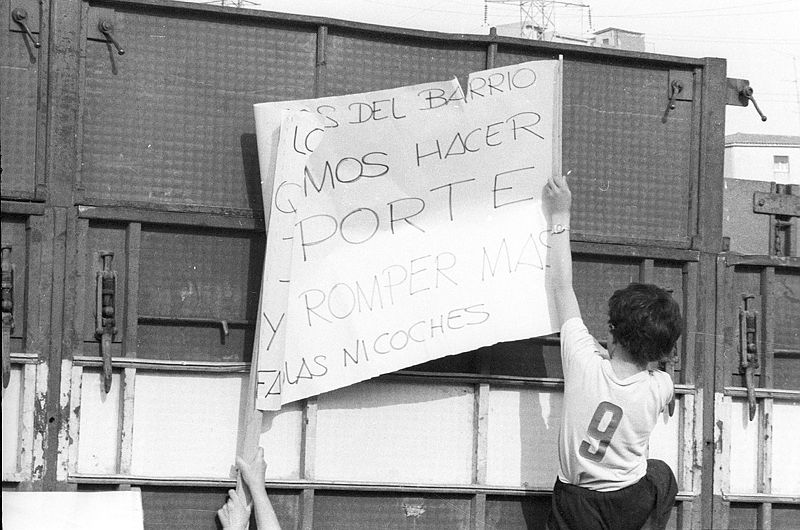 LOS DEL BARRIO
QMOS HACER
PORTE
Y ROMPER MAS
FALAS NI COCHES
9